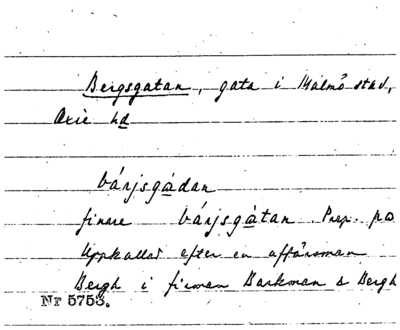 Bergsgatan, gata i Malmö stad,
Oxie hd
bárjsgàdan
finare bárjsgàtan. Prep. på
Uppkallad efter en affärsman
Bergh i firman Barkman & Bergh
Nr 5753.